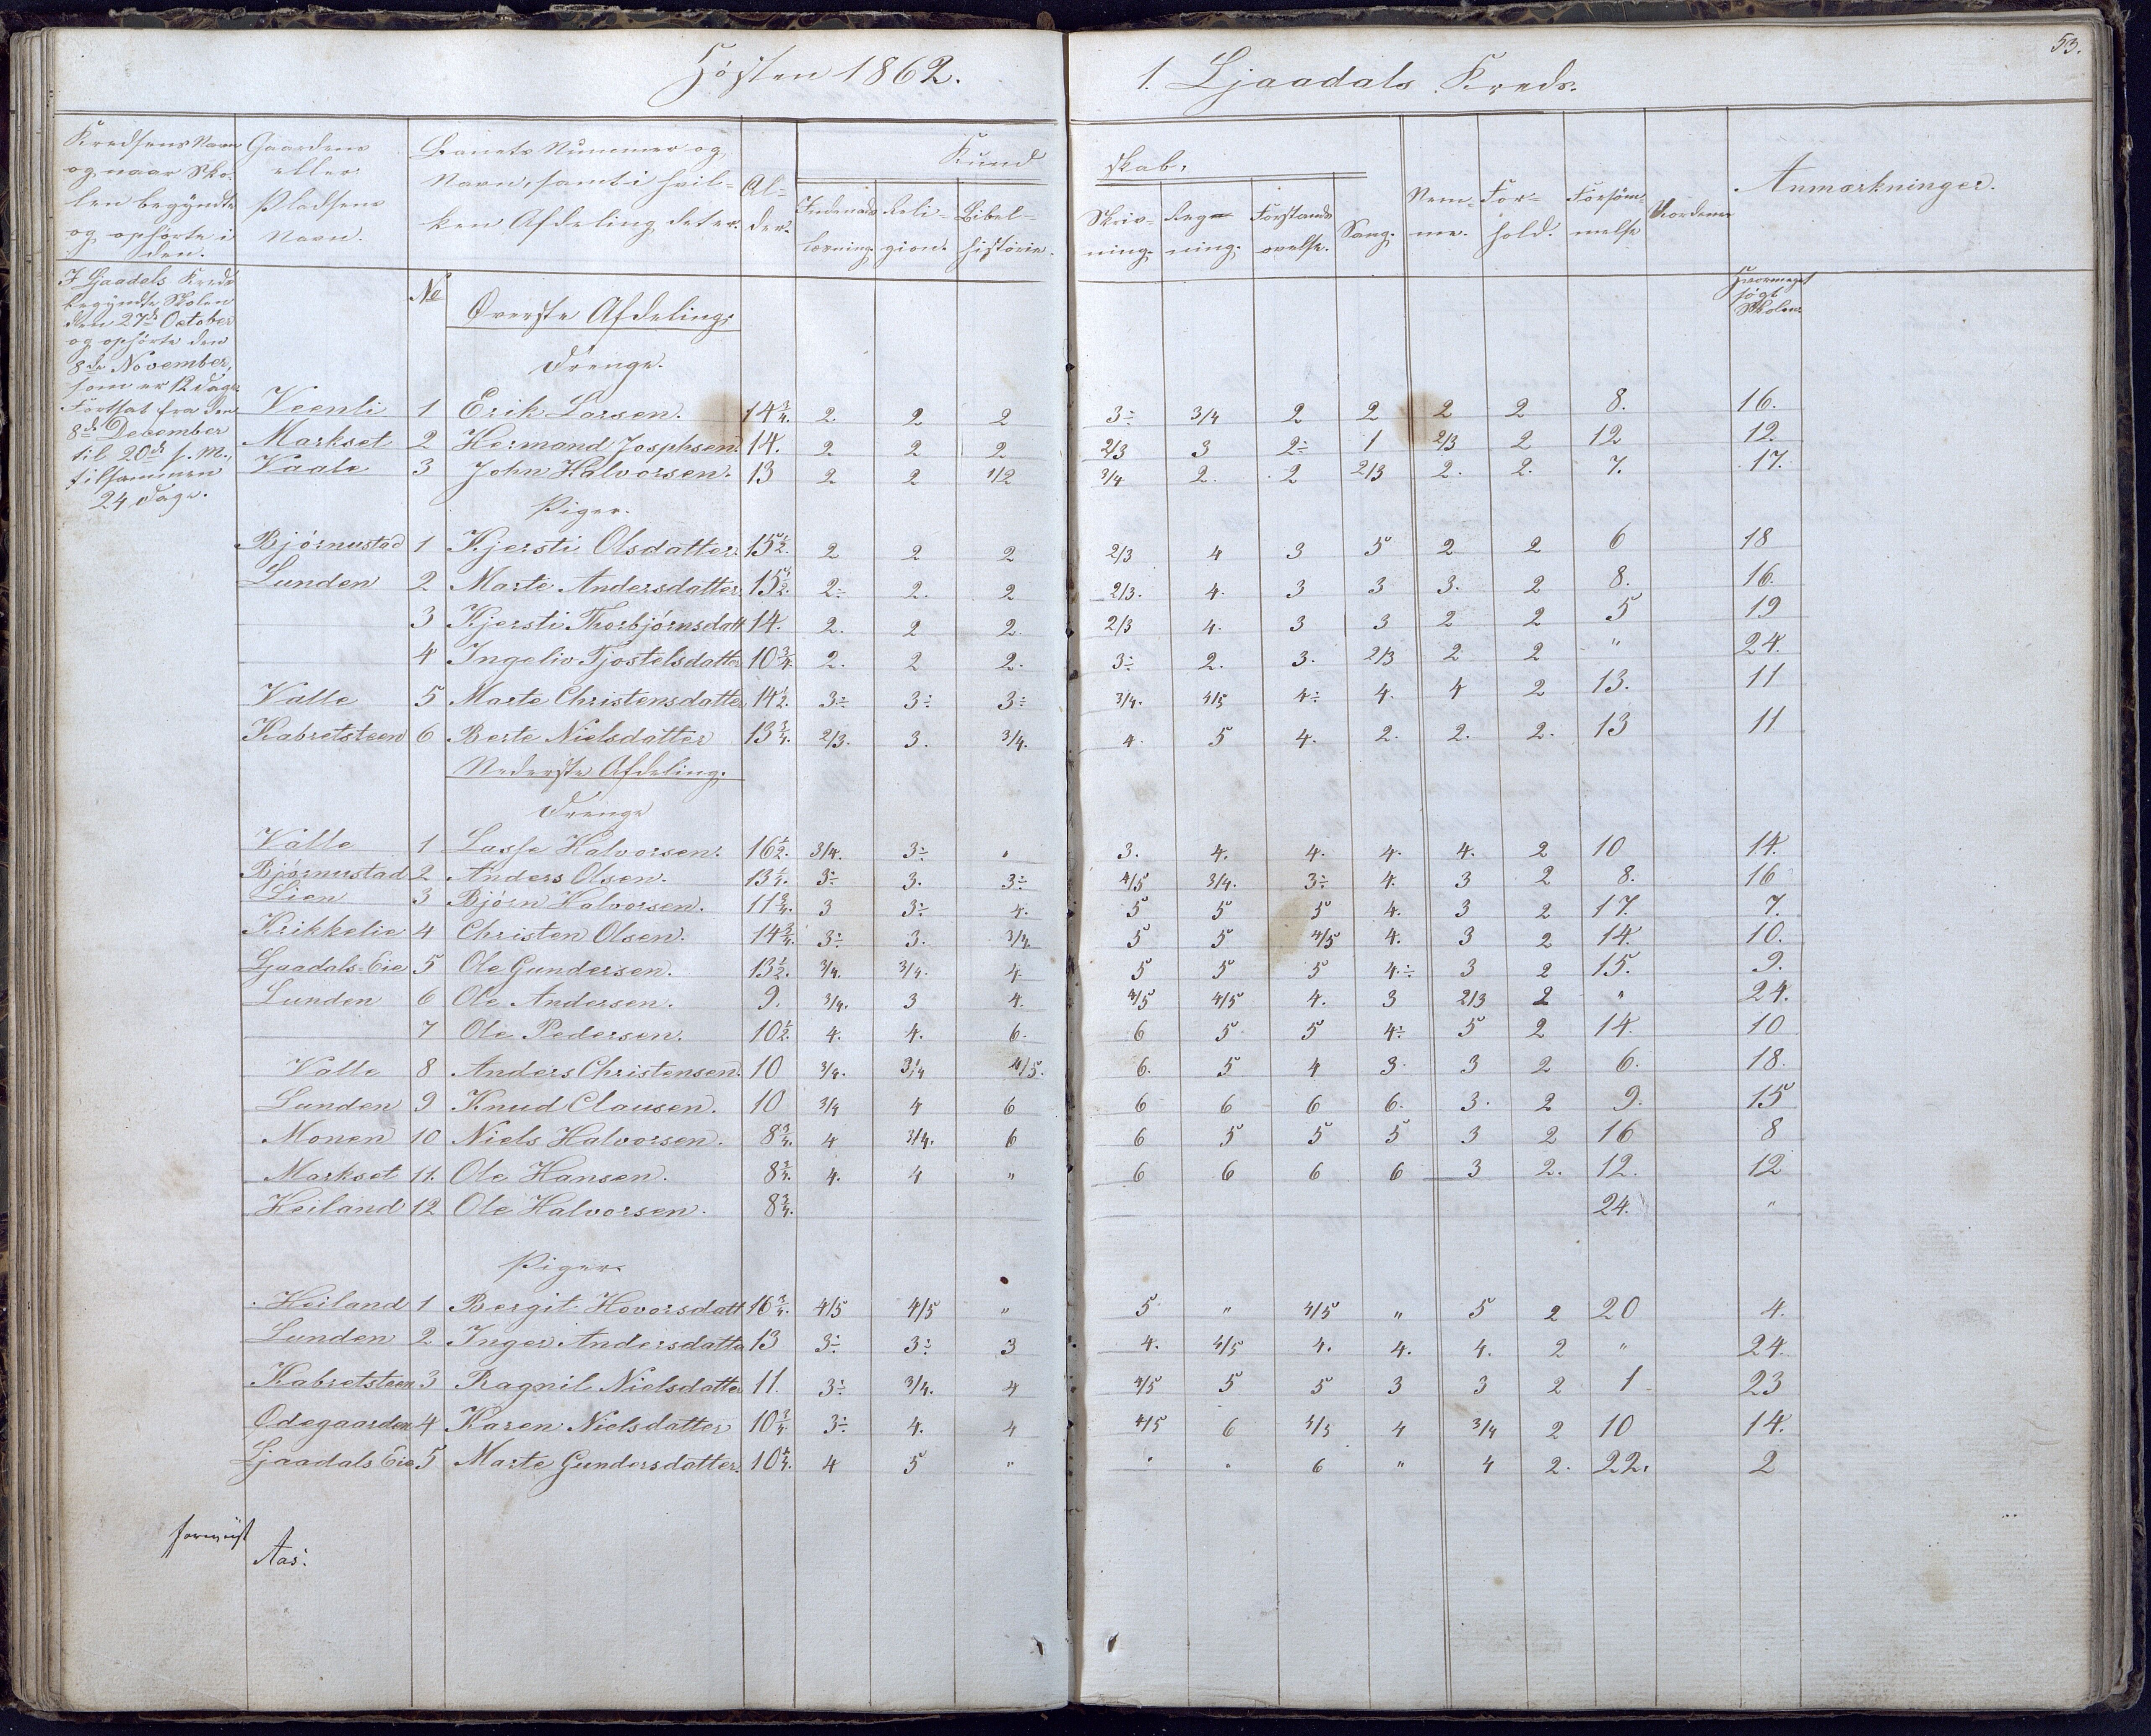 Høsten 1862.
1. Ljaadals Kreds.
53.
Kredsens Navn og naar Skolen begyndte og ophørte i den.
Gaardens eller Pladsens Navn.
Barnets Nummer og Navn, samt i hvilken Afdeling det er.
Alder.
Kundskab.
Indenadslæsning.
Religion.
Bibelhistorie.
Skrivning.
Regning.
Forstandsøvelse.
Sang.
Nemme.
Forhold.
Forsømmelse
Anmærkninger.
I Ljaadals Kreds
begyndte Skolen
den 27de October
og ophørte den
8de November,
som er 12 Dage.
Fortsat fra den
8de December
til 20de s. M.,
tilsammen
24 Dage.
No
Øverste Afdeling.
hvormeget
søgt
Skolen.
Drenge.
Veenli 1 Erik Larsen. 14 3/4. 2. 2 2 3÷ 3/4 2 2 2 2 8. 16.
Markset 2 Hermand Josphsen. 14. 2 2 2 2/3 3 2÷ 1 2/3 2 12 12.
Vaale 3 John Halvorsen. 13 2 2 1/2 3/4 2. 2 2/3 2. 2. 7. 17.
Piger.
Bjørnustad 1 Kjersti Olsdatter. 15 1/2. 2 2 2 2/3 4 3 5 2 2 6 18
Lunden 2 Marte Andersdatter 15 1/2. 2÷ 2. 2 2/3. 4. 3 3 3. 2 8. 16.
3 Kjersti Thorbjørnsdatt 14. 2. 2 2. 2/3 4. 3 3 2 2 5 19
4 Ingeliv Tjostelsdatter 10 3/4. 2. 2 2. 3÷ 2. 3. 2/3 2 2 " 24.
Valle 5 Marte Christensdatter 14 1/2. 3÷ 3÷ 3÷ 3/4. 4/5 4÷ 4. 4 2 13. 11
Kabretsteen 6 Berte Nielsdatter 13 3/4. 2/3. 3. 3/4. 4. 5 4. 2. 2. 2. 13 11
Nederste Afdeling.
Drenge
Valle 1 Lasse Halvorsen. 16 1/2. 3/4. 3÷ " 3. 4. 4. 4. 4. 2 10 14.
Bjørnustad 2 Anders Olsen. 13 1/4. 3÷ 3. 3÷ 4/5 3/4. 3÷ 4. 3 2 8. 16
Lien 3 Bjørn Halvorsen. 11 3/4. 3 3÷ 4. 5 5 5 4. 3 2 17. 7.
Krikkelie 4 Christen Olsen. 14 3/4. 3÷ 3. 3/4 5 5 4/5 4. 3 2 14. 10.
Ljaadals Eie 5 Ole Gundersen. 13 1/2. 3/4. 3/4. 4. 5 5 5 4÷ 3 2 15. 9.
Lunden 6 Ole Andersen. 9. 3/4. 3 4. 4/5 4/5 4. 3 2/3 2 " 24.
7 Ole Pedersen. 10 1/2. 4. 4. 6. 6 5 5 4÷ 5 2 14. 10
Valle 8 Anders Christensen. 10 3/4. 3/4 4/5. 6. 5 4 3. 3 2 6. 18.
Lunden 9 Knud Clausen. 10 3/4 4 6 6 6 6 6. 3. 2 9. 15
Monen 10 Niels Halvorsen. 8 3/4. 4 3/4. 6 6 5 5 5 3 2 16 8
Markset 11. Ole Hansen. 8 3/4. 4. 4 " 6 6 6 6 3 2. 12. 12
Heiland 12 Ole Halvorsen. 8 3/4. 24. "
Piger.
Heiland 1 Bergit Hovorsdatt 16 3/4. 4/5 4/5 " 5 " 4/5 " 5 2 20 4.
Lunden 2 Inger Andersdatter 13 3÷ 3÷ 3 4. 4/5 4. 4. 4. 2 " 24.
Kabretsteen 3 Ragnil Nielsdatter 11. 3÷ 3/4. 4 4/5 5 5 3 3 2 1 23
Ødegaarden 4 Karen Nielsdatter 10 3/4 3÷ 4. 4 4/5 6 4/5 4 3/4 2 10 14.
Ljaadals Eie 5 Marte Gundersdatter. 10 1/4. 4 5 " " " 6 " 4 2. 22. 2
Aas.